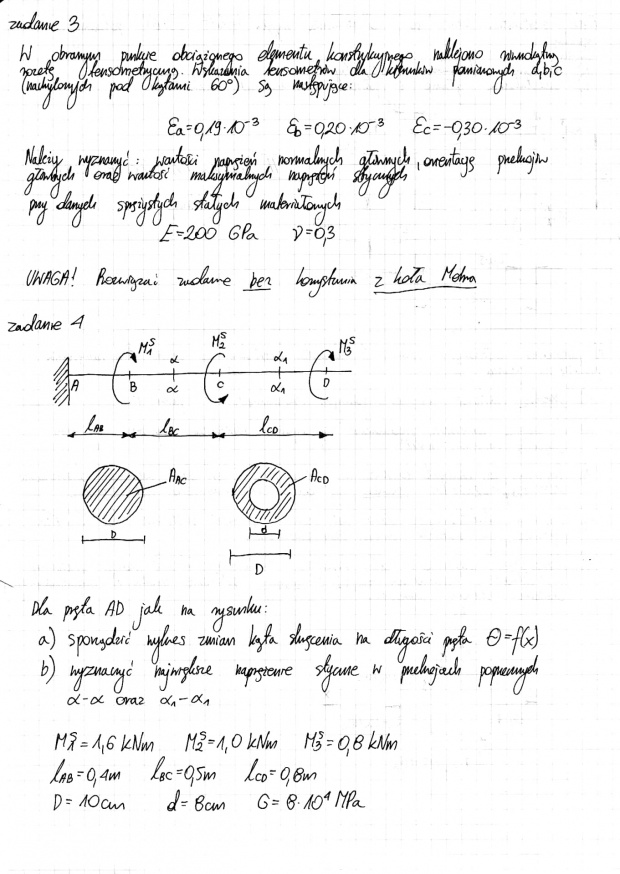 zadanie 3
W obranym punkcie obciążonego elementu konstrukcyjnego naklejono równokątną
rozetę tensometryczną. Wskazania tensometrów dla kierunków pomiarowych a,b,c
(nachylonych pod kątami 60°) są następujące:
Ea=0,19·10⁻³ Eb=0,20·10⁻³ Ec=-0,30·10⁻³
Należy wyznaczyć: wartości naprężeń normalnych głównych, orientację przekrojów
głównych oraz wartość maksymalnych naprężeń stycznych
przy danych sprężystych stałych materiałowych
E=200 GPa ν=0,3
UWAGA! Rozwiązać zadanie bez korzystania z koła Mohra
zadanie 4
M₁ˢ α M₂ˢ α₁ M₃ˢ
A B α C α₁ D
lAB lBC lCD
AAC ACD
D d
D
Dla pręta AD jak na rysunku:
a) sporządzić wykres zmian kąta skręcenia na długości pręta Θ=f(x)
b) wyznaczyć największe naprężenie styczne w przekrojach poprzecznych
α-α oraz α₁-α₁
M₁ˢ=1,6 kNm M₂ˢ=1,0 kNm M₃ˢ=0,8 kNm
lAB=0,4m lBC=0,5m lCD=0,8m
D=10cm d=8cm G=8·10⁴ MPa